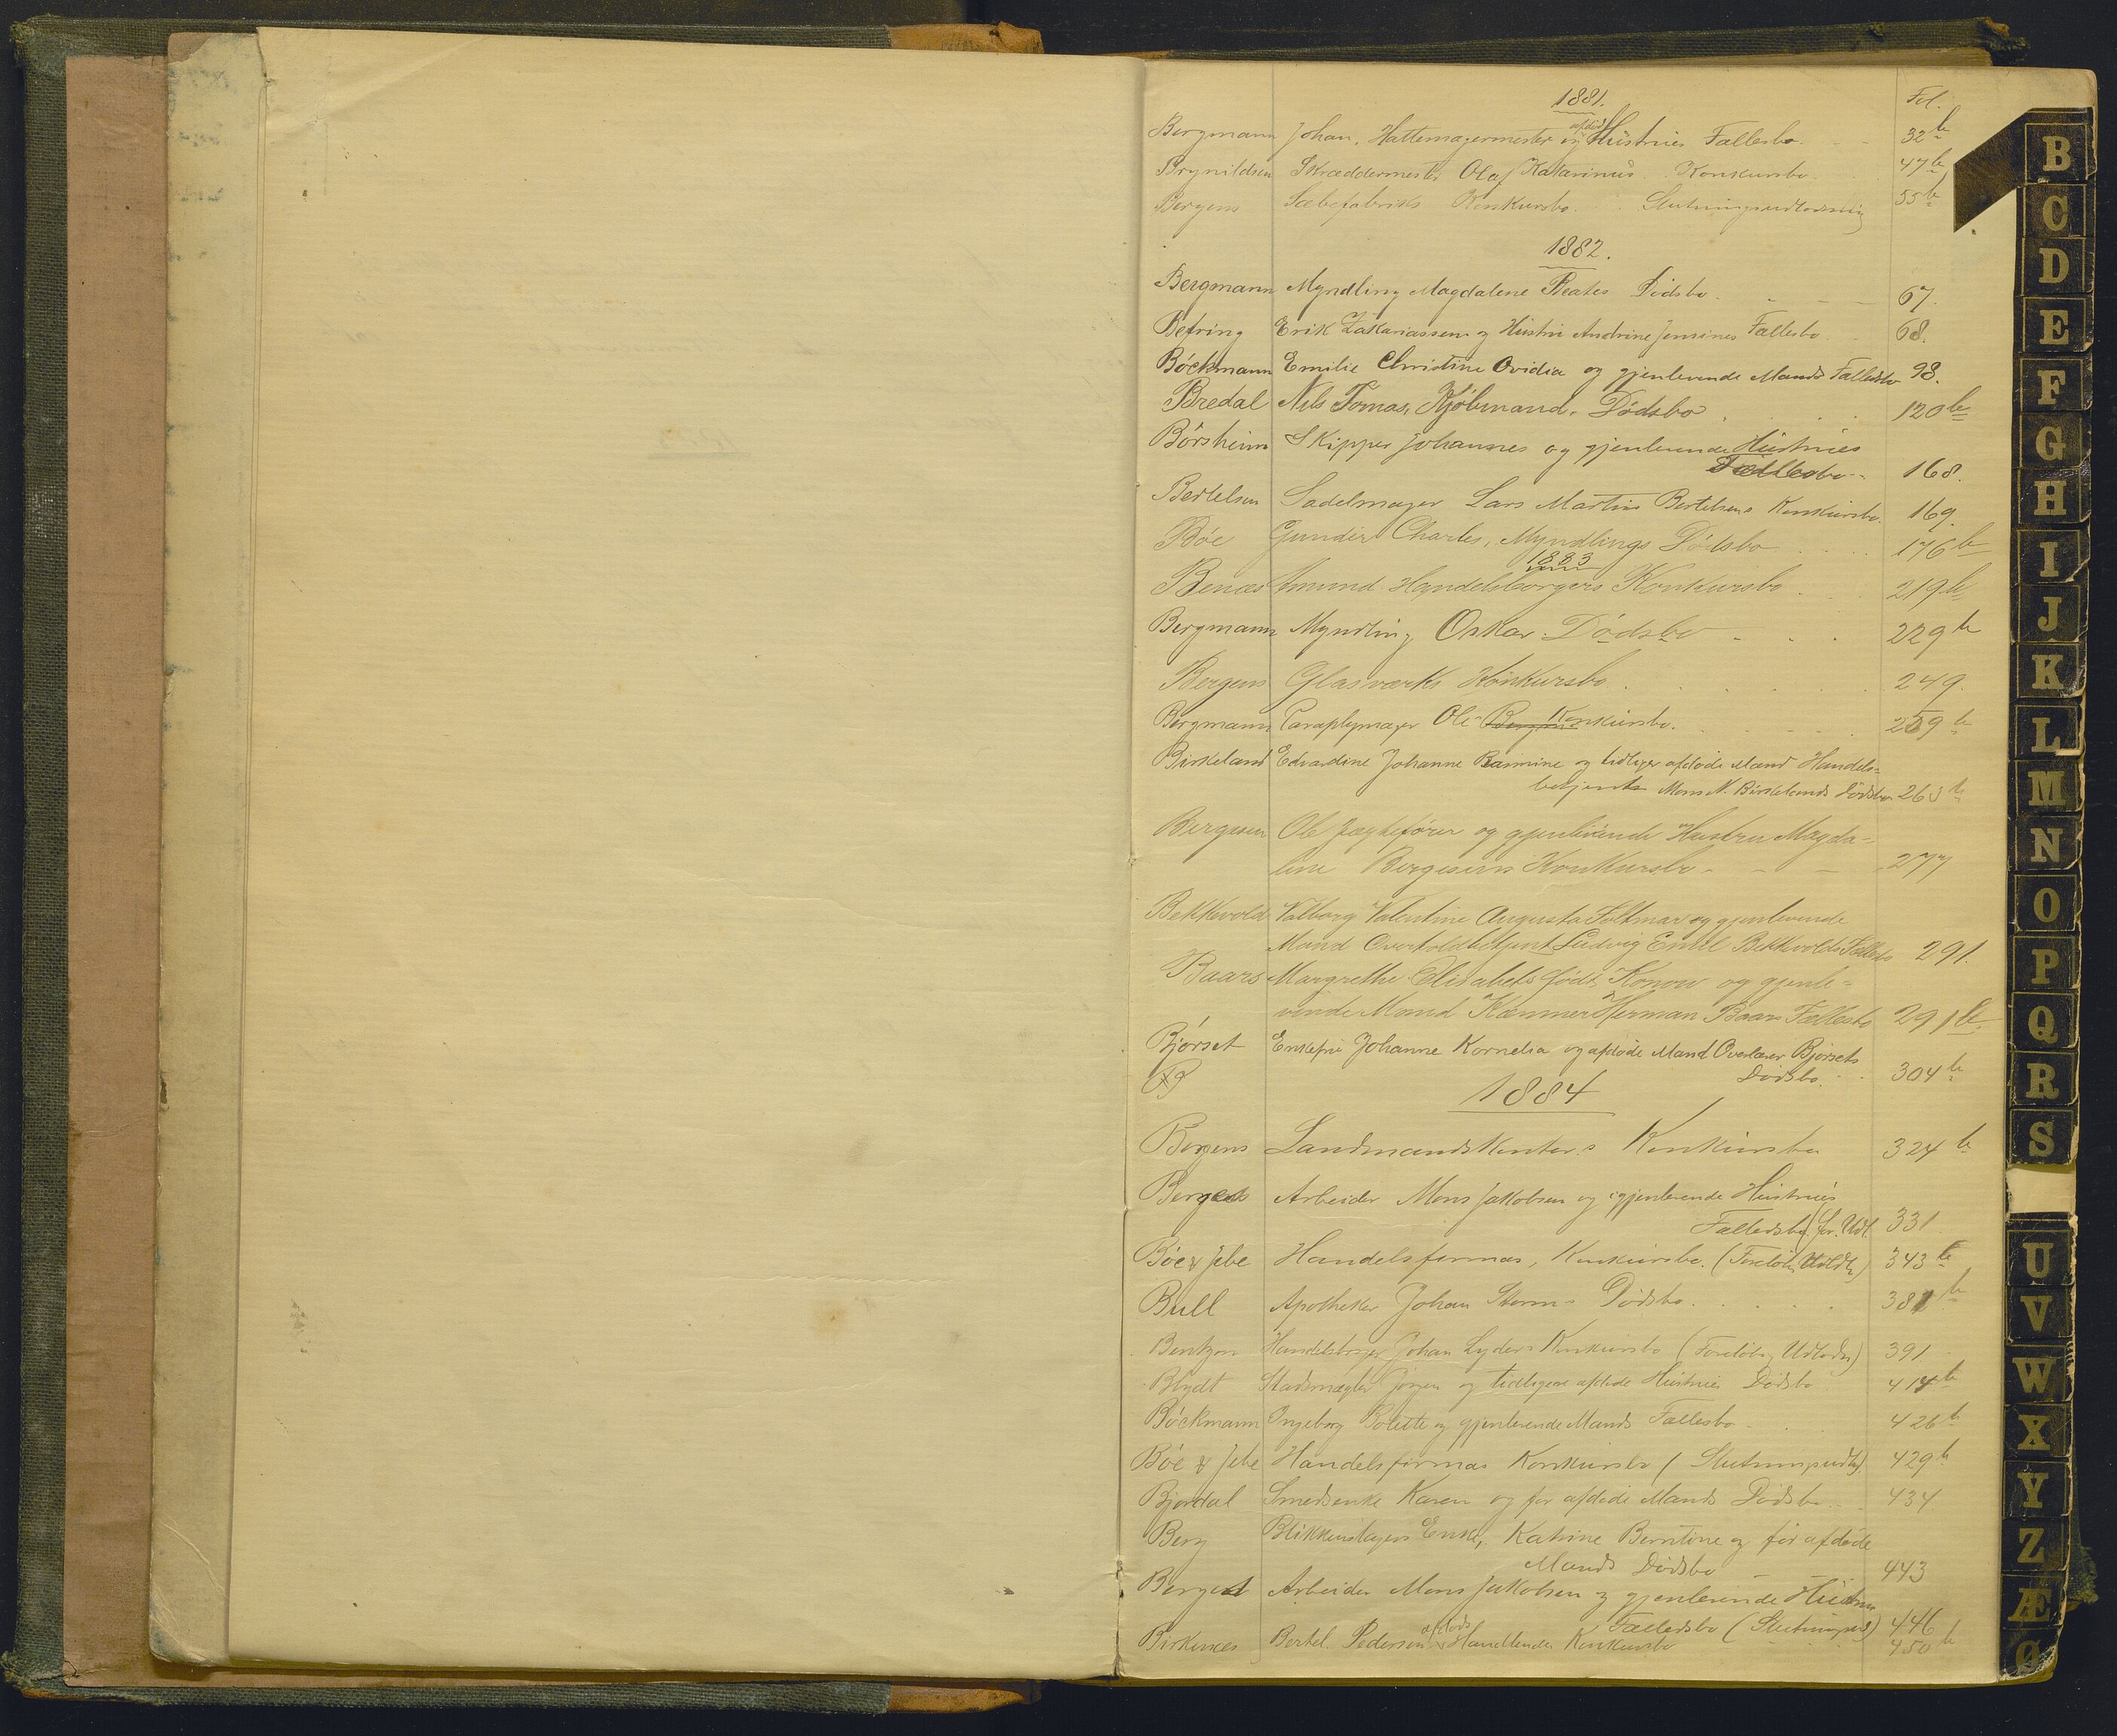 1881.
Fol.
afdød
Bergmann Johan, Hattemagermester og Hustrues Fællesbo. 32b
Brynildsen Skræddermester Olaf Katarinus Konkursbo. 47b
Bergens Sæbefabriks Konkursbo. Slutningsudlodning 55b
1882.
Bergmann Myndling Magdalene Beates Dødsbo. 67.
Befring Erik Zakariassen og Hustru Andrine Jensines Fællesbo. 68.
Böckmann Emilie Christine Ovidia og gjenlevende Mands Fælledsbo 98.
Bredal Nils Tomas, Kjöbmand. Dödsbo 120b
Börsheim Skipper Johannes og gjenlevende Hustrues
Fællesbo 168.
Bertelsen Sadelmager Lars Martin Bertelsens Konkursbo. 169.
Böe Gunder Charles, Myndlings Dödsbo 176b
1883
Benæs Amund Handelsborgers Konkursbo. 219b
Bergmann Myndling Oskar Dödsbo 229b
Bergens Glasværks Konkursbo 249.
Bergmann Paraplymager Ole Konkursbo. 259b
Birkeland Edvardine Johanne Rasmine og tidliger afdöde Mand Handels=
betjents Mons N. Birkelands Dödsbo 263b
Bergesen Ole Jægtefører og gjenlevende Hustru Magda=
lene Bergesens Konkursbo 277
Bekkevold Valborg Valentine Augusta Foltmar og gjenlevende
Mand Overtoldbetjent Ludvig Emil Bekkevolds Fællesbo 291.
Baars Margrethe Elisabets född Konow og gjenle=
vende Mand Kæmner Herman Baars Fællesbo 291b.
Björset Enkefru Johanne Kornelia og afdöde Mand Overlærer Björsets
Dödsbo. 304b
B
1884
Bergens Landmandskontors Konkursbo 324b
Berge Arbeider Mons Jakobsen og gjenlevende Hustrues
Fælledsbo (for. Udl. 331
Böe & Jebe Handelsfirmas, Konkursbo. (Foreløb. Udlodn) 343b
Bull Apotheker Johan Storm Dödsbo. 381b
Bentzon Handelsborger Johan Lyders Konkursbo (Foreløbig Udlodn) 391
Blydt Stadsmægler Jörgen og tidligere afdöde Hustrues Dödsbo 414b
Böckmann Ingeborg Bolette og gjenlevende Mands Fællesbo 426b
Böe & Jebe Handelsfirmas Konkursbo (Slutningsudl) 429b
Bjordal Smedenke Karen og för afdöde Mands Dödsbo 434
Berg Blikkenslagers Enke, Katrine Berntine og för afdöde
Mands Dödsbo 443
Berge Arbeider Mons Jakobsen og gjenlevende Hustrus
Fælledsbo (Slutnings) 446
afdöds
Birkenæs Bertel Pedersen Handlende Konkursbo 450b
B
C
D
E
F
G
H
I
J
K
L
M
N
O
P
Q
R
S
U
V
W
X
Y
Z
Æ
Ø